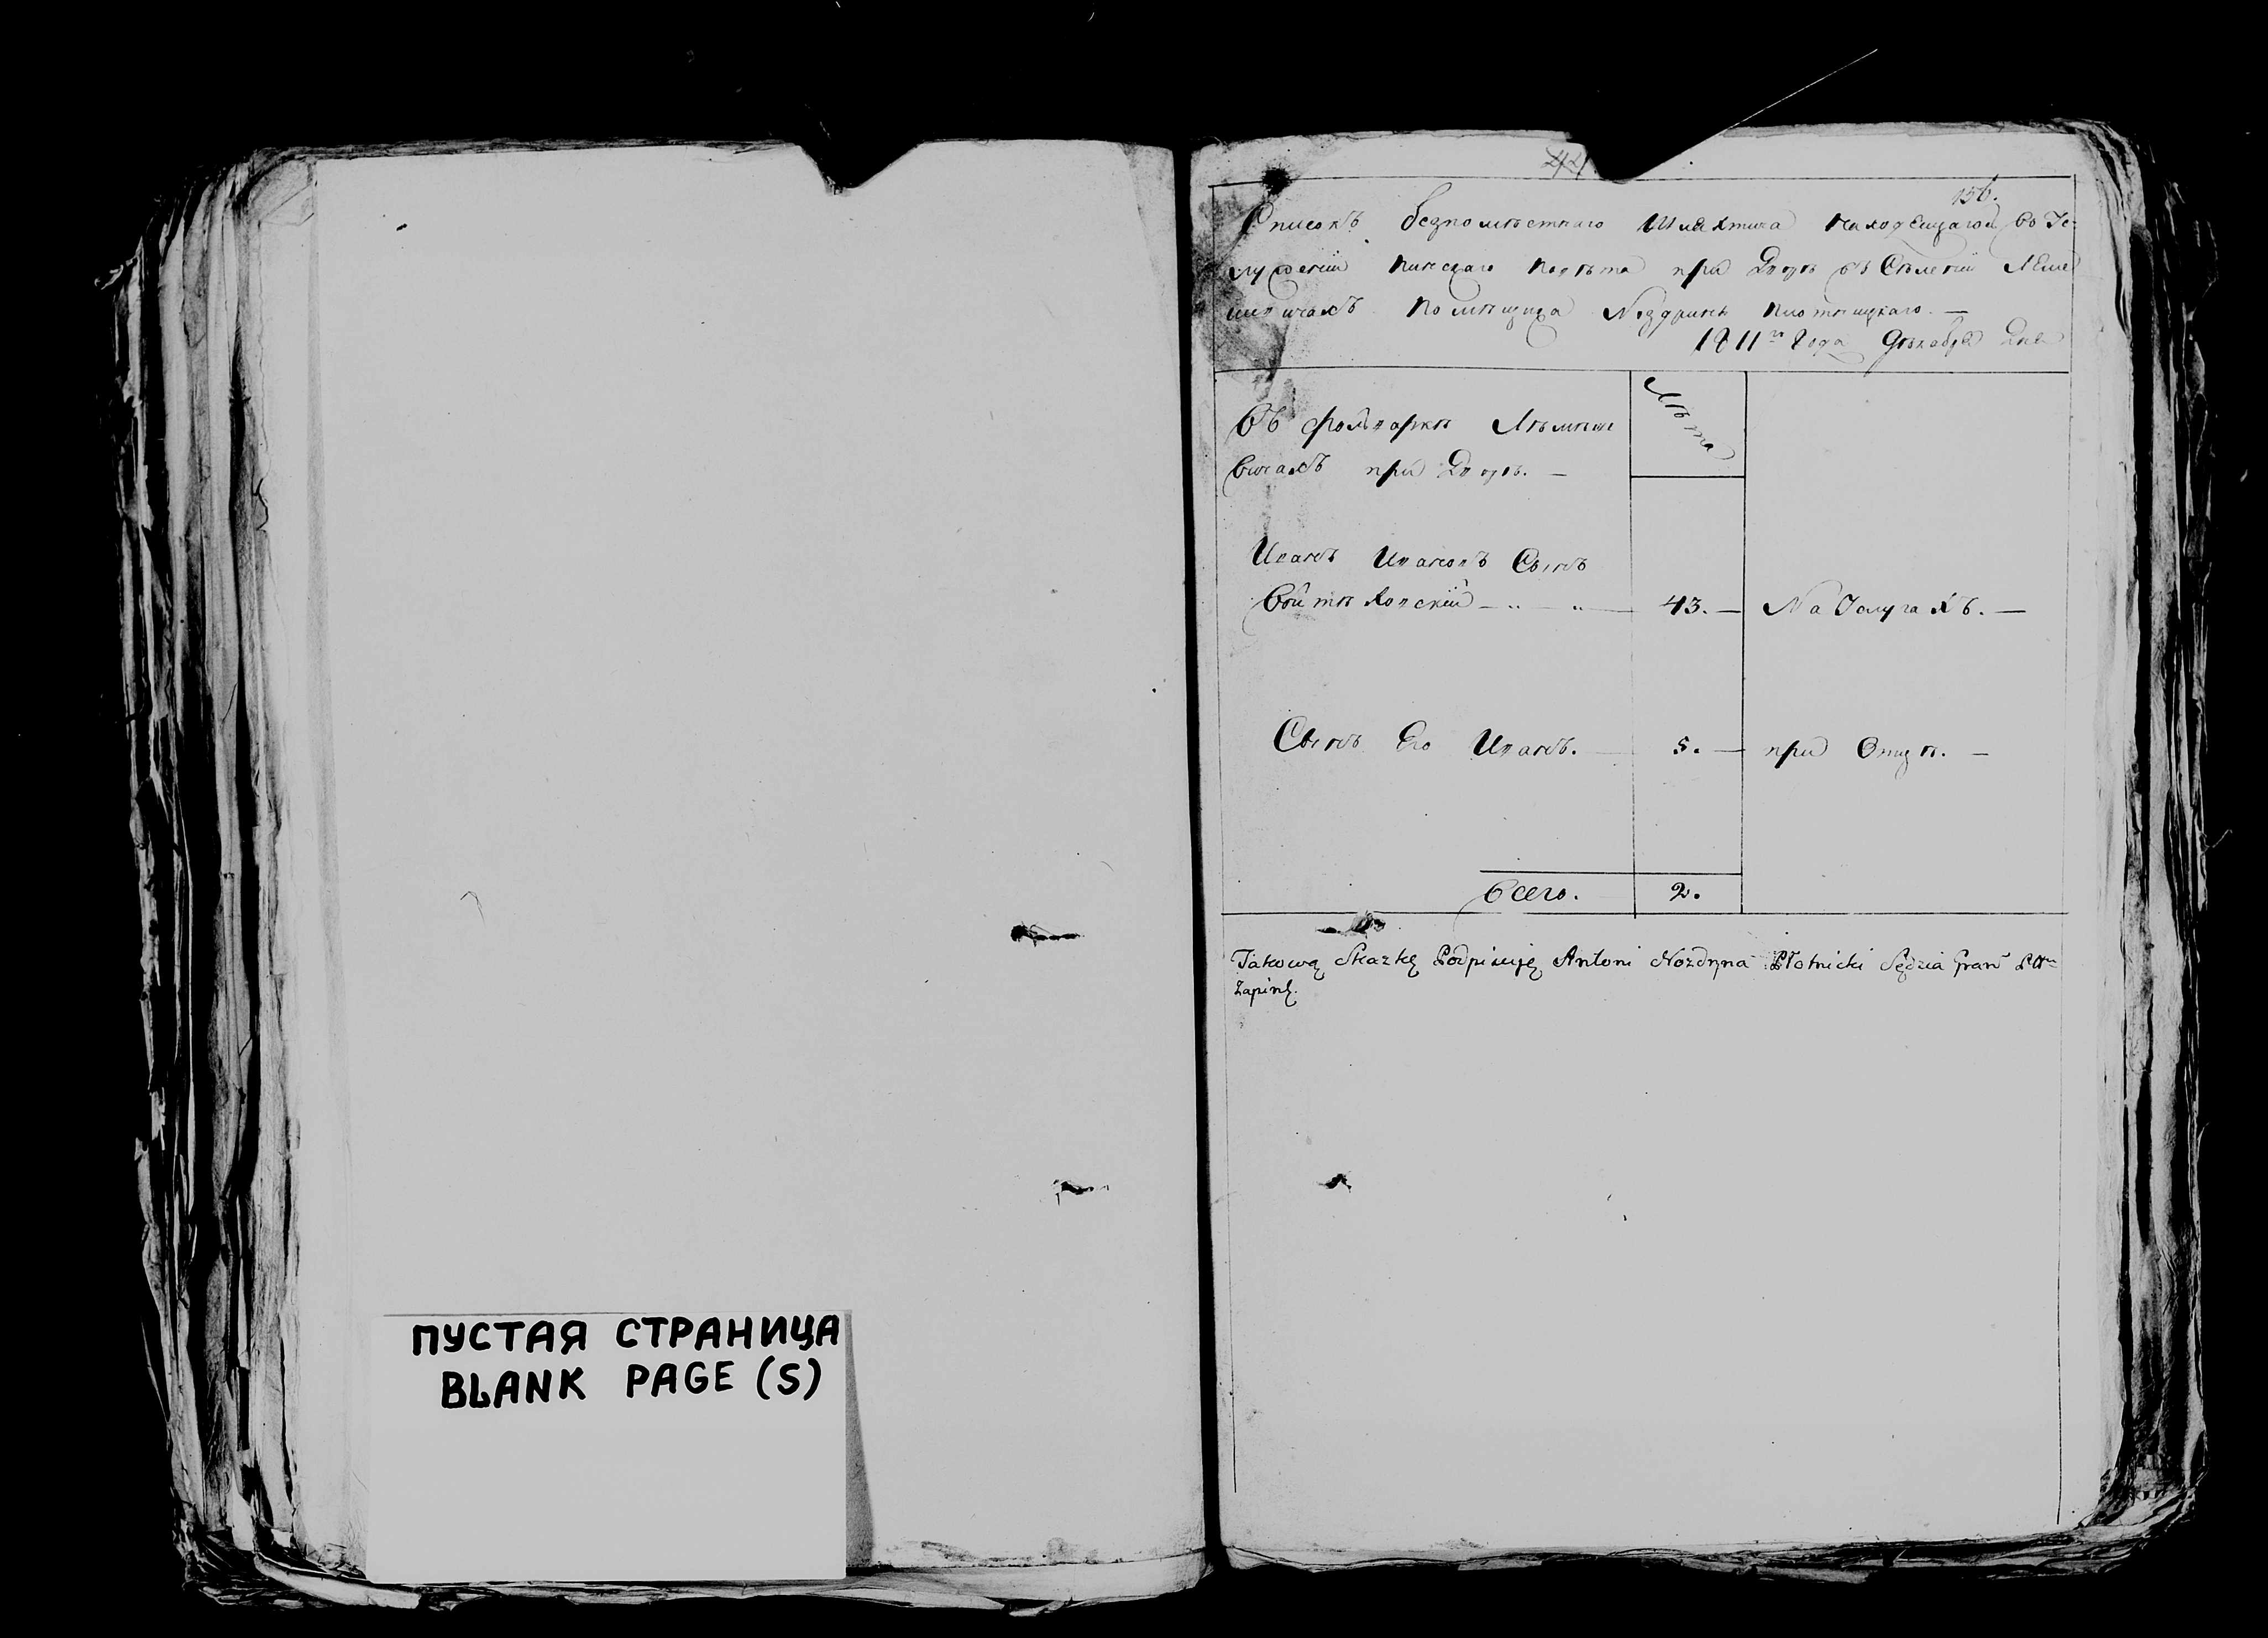 ПУСТАЯ СТРАНИЦА
BLANK PAGE (S)
44
156.
Списокъ безпомѣстнаго Шляхтича находещагося во Ус-
луженіи Пинскаго Повѣта при Дворѣ въ Сѣленіи Леме
шевичахъ ПомѣщикаНоздрины Плотницкаго. —
1811го Года Дѣкабря Дня
Въ фольваркѣ Лѣмѣше
вичахъ при Дворѣ. —
Лѣта
Иванъ Ивановъ Сынъ
Войтѣховскій — „ — „ — 43. — На Услугахъ. —
Сынъ Его Иванъ. — 5. — при Отцѣ. —
Всего. 2.
Takową Skazkę Podpisuję Antoni Nozdryna Płotnicki Sędzia Gran Pttu
Zapinſ.